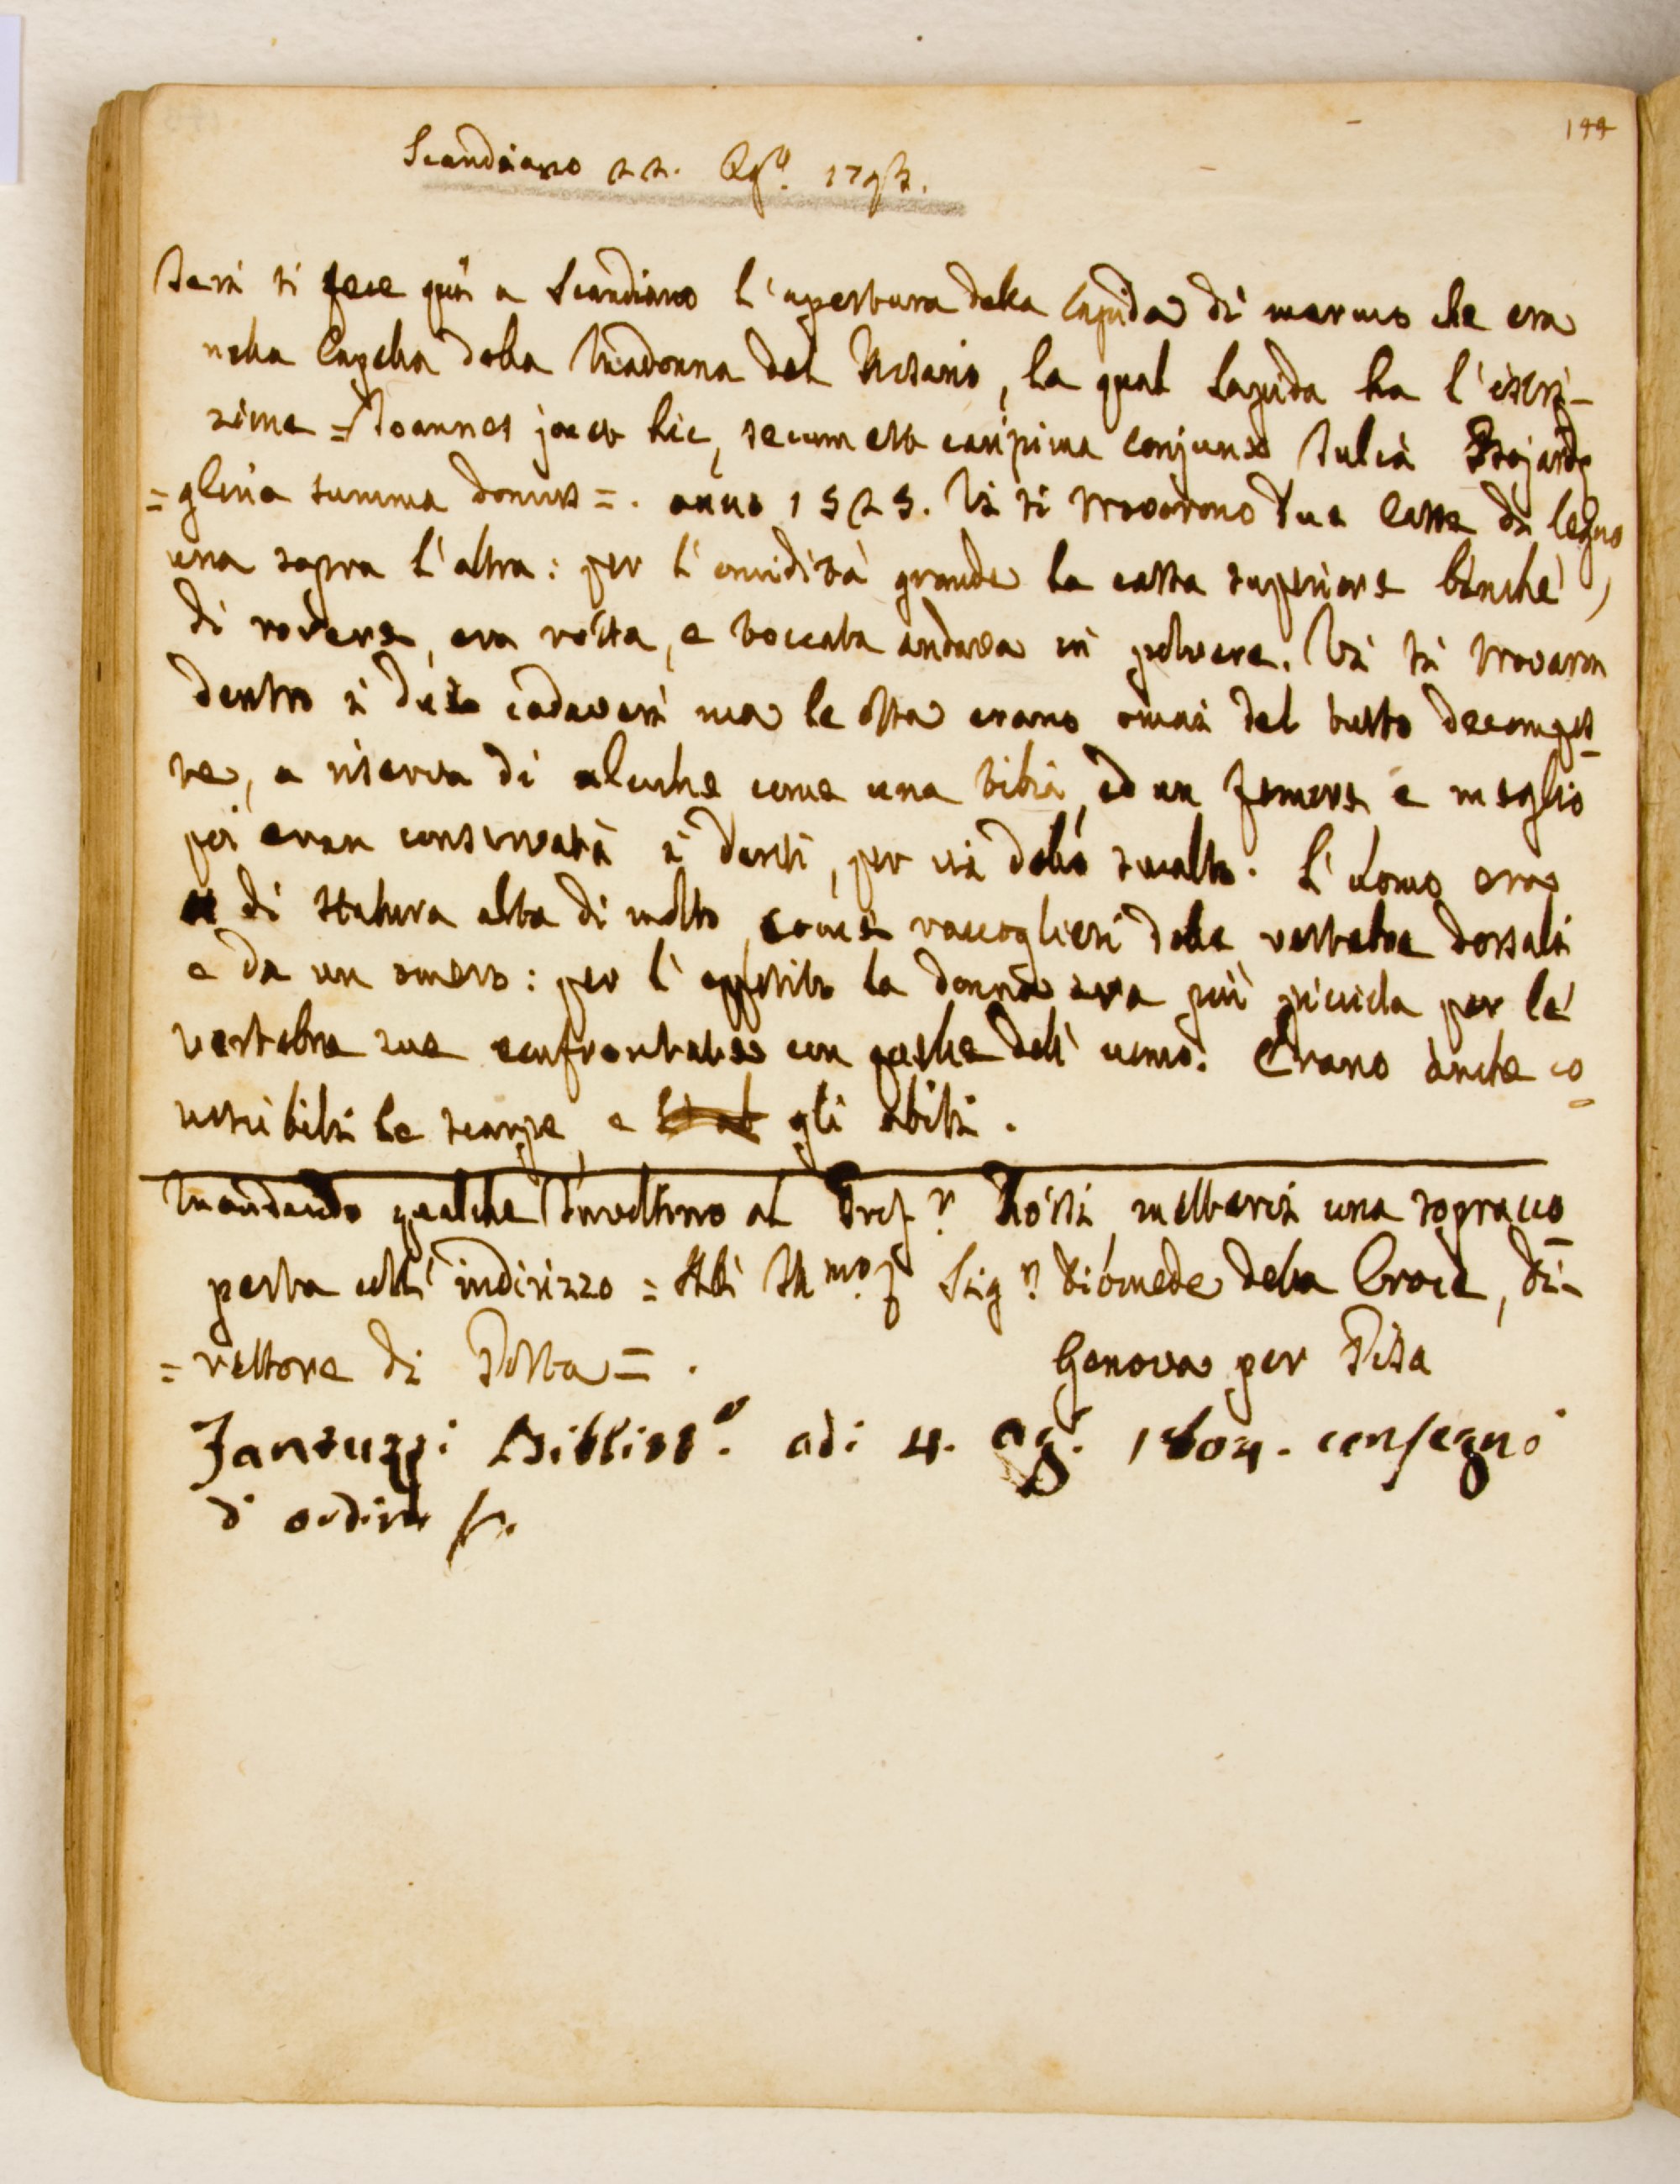 144
Scandiano 22. Ag.º 1792.
Ieri si fece quì a Scandiano l'apertura della lapida di marmo che era
nella Capella della Madonna del Rosario, la qual lapida ha l'iscri-
zione = Joannes jacet hic, secum est carissima conjunx Julia Bojarda
= summa domus = . anno 1523. Vi si trovarono due casse di legno
una sopra l'altra: per l'umidità grande la cassa superiore benchè,
di rovere, era rotta, e toccata andava in polvere. Vi si trovaron
dentro i due cadaveri ma le ossa erano omai del tutto decompos-
te, a riserva di alcune come una tibia, ed un femore e meglio
poi eran conservati i denti, per via dello smalto. L'uomo era
di statura alta di molto, come raccoglieri dalle vertebre dorsali
e da un omero: per l'opposito la donna era più piccola per le
vertebre sue confrontate con quelle dell'uomo. Erano anche co-
noscibili le scarpe, e gli abiti.
Mandando qualche Involtino al Prof.r Rossi mettervi una sopracco-
perta coll'indirizzo = All' Ill.mo Sig.r Diomede della Croce, Di-
= rettore di Posta = . Genova per Pisa
Fantuzzi Bibliot.º adi 4. Ag.º 1804. consegnò
d'ordine